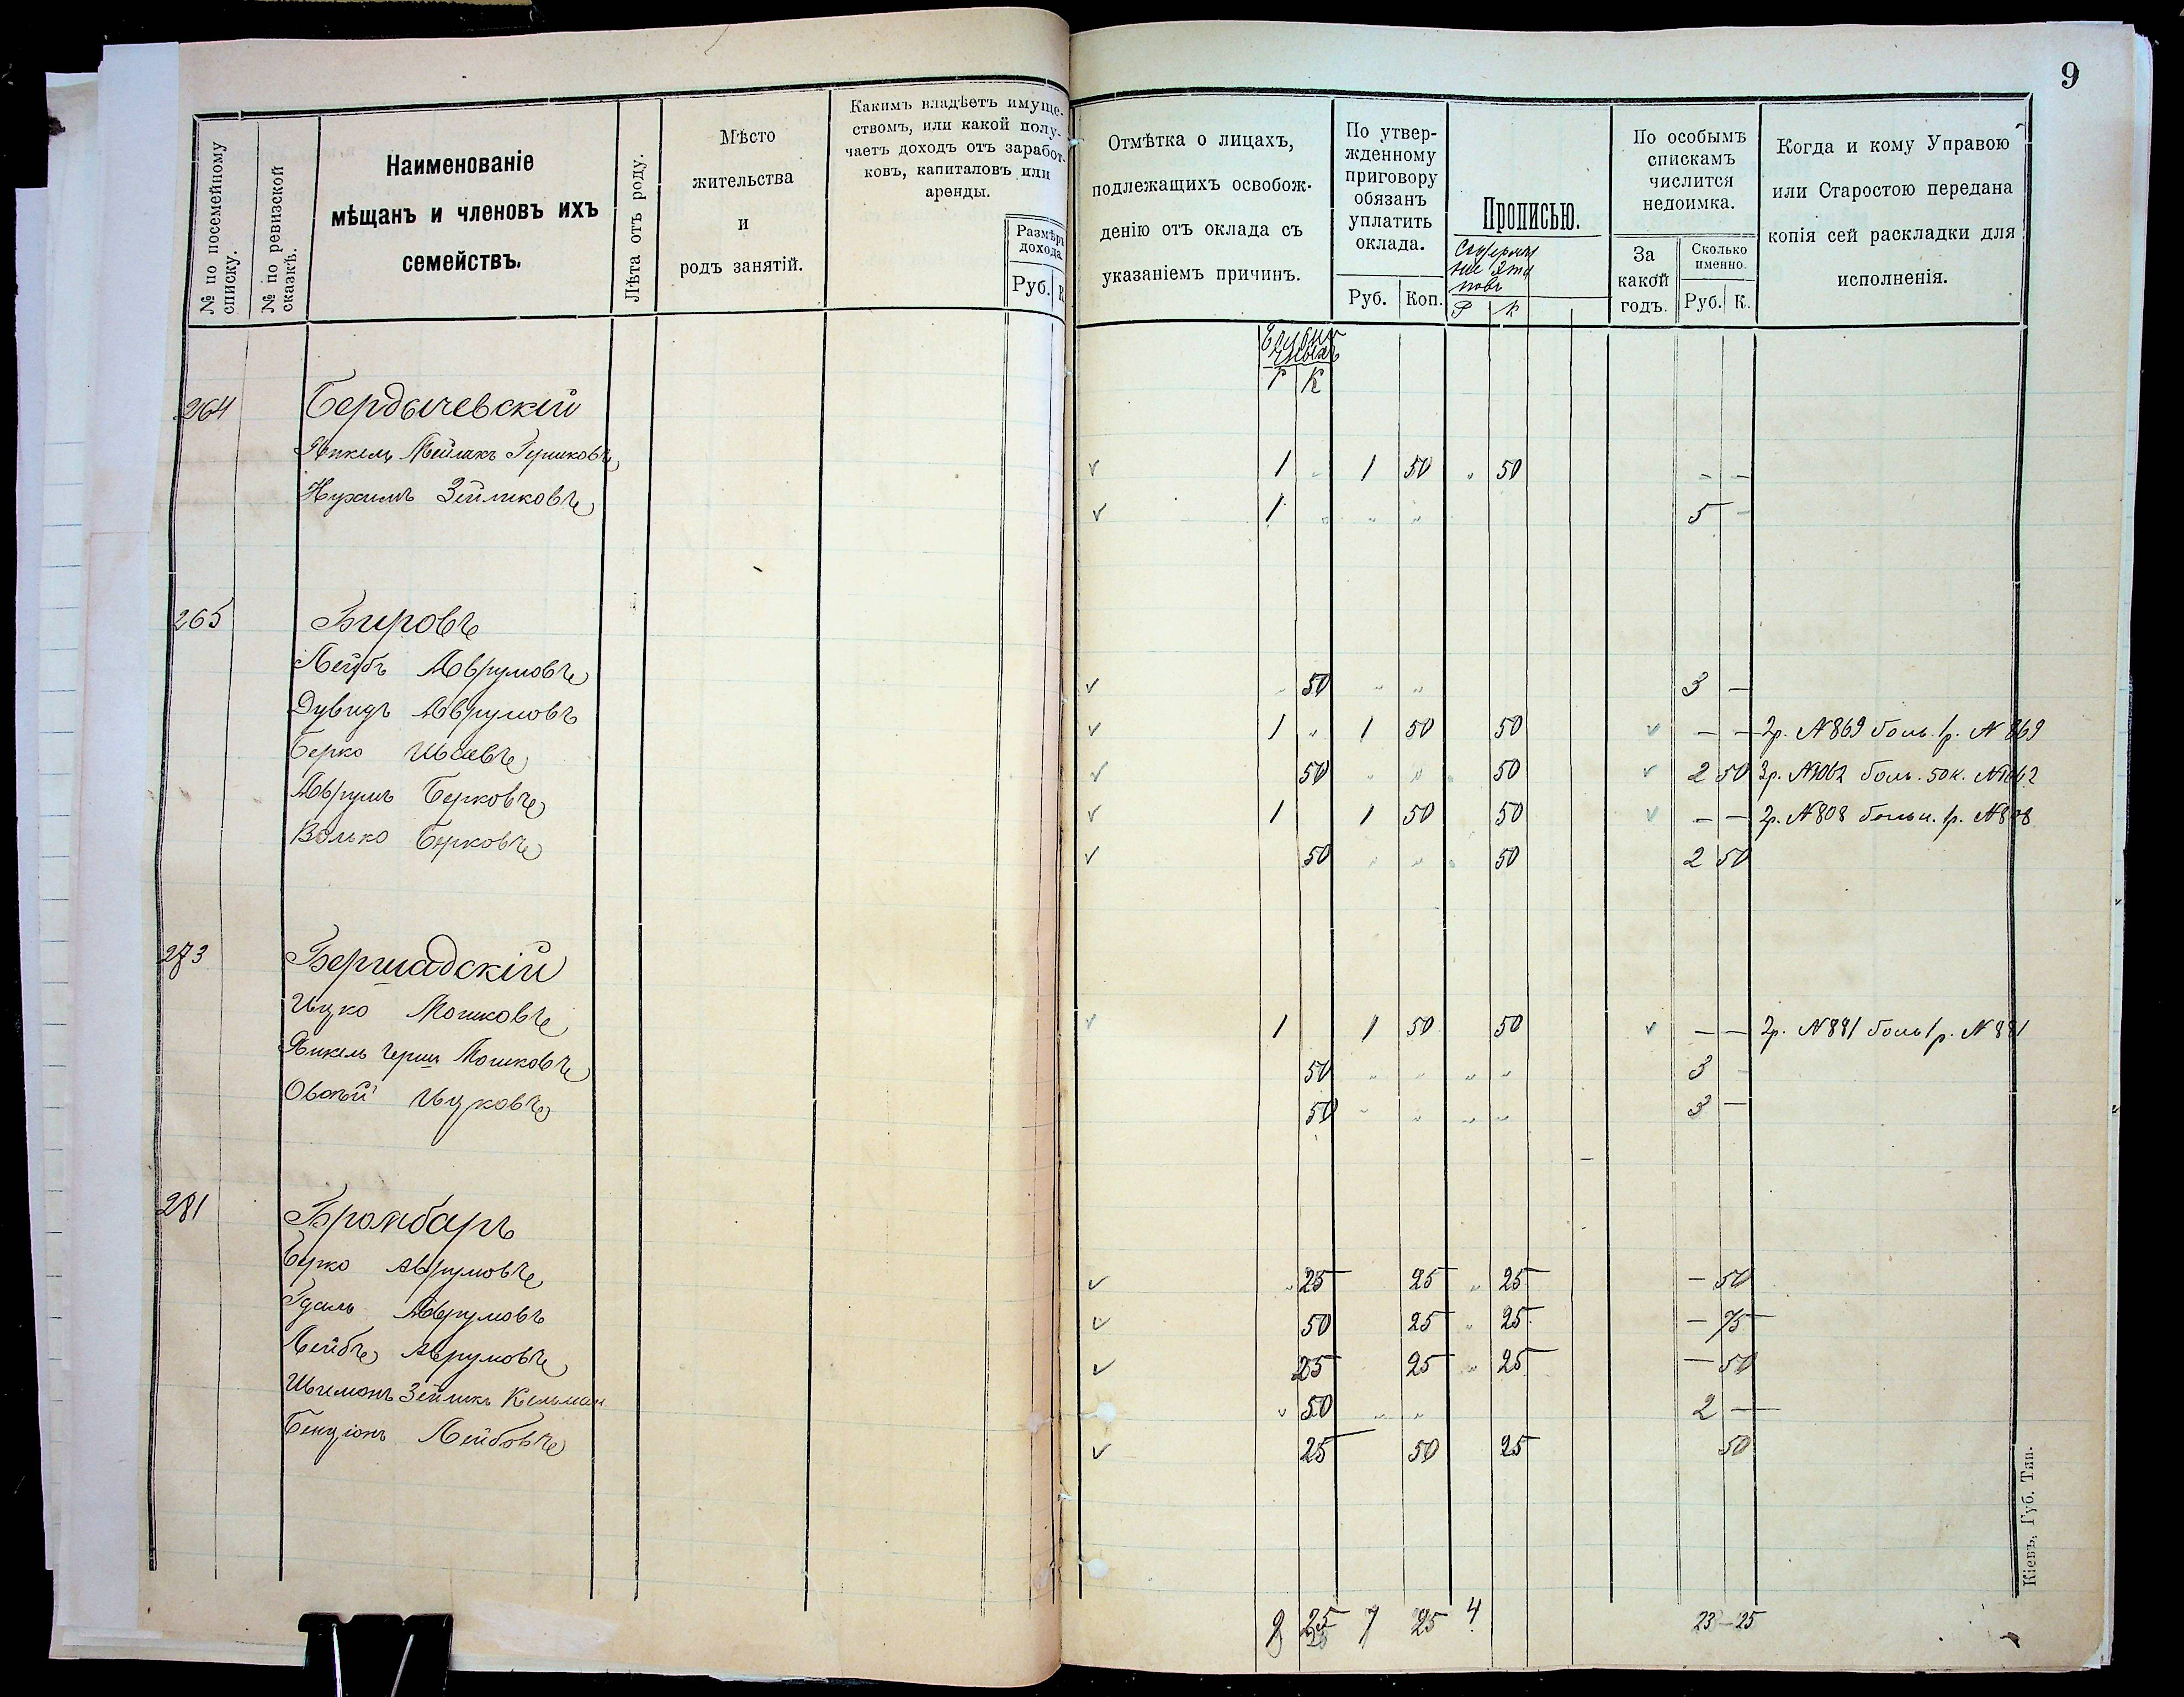 9
№ по посемейному списку.
№ по ревизской сказкѣ.
Наименованіе
мѣщанъ и членовъ ихъ
семействъ.
Лѣта отъ роду.
Мѣсто
жительства
и
родъ занятій.
Какимъ владѣетъ имуще-
ствомъ, или какой полу-
чаетъ доходъ отъ заработ-
ковъ, капиталовъ или
аренды.
Размѣръ
дохода
Руб. К
Отмѣтка о лицахъ,
подлежащихъ освобож-
денію отъ оклада съ
указаніемъ причинъ.
По утвер-
жденному
приговору
обязанъ
уплатить
оклада.
Руб. Коп.
Прописью.
Р К
По особымъ
спискамъ
числится
недоимка.
За
какой
годъ.
Сколько
именно.
Руб. К.
Когда и кому Управою
или Старостою передана
копія сей раскладки для
исполненія.
Р К
264 Бердычевскій
Янкель Мейлахъ Гершковъ 1 1 50 50 — —
Нухимъ Зейликовъ 1 5 —
265 Бировъ
Лейбъ Аврумовъ 50 3 —
Дувидъ Аврумовъ 1 1 50 50 — — 2р. №869 больн. 1р. №869
Берко 50 50 2 50 3р. №1062 больн. 50к. №1062
Аврумъ Берковъ 1 1 50 50 — — 2р. №808 больн. 1р. №808
Волько Берковъ 50 50 2 50
273 Бершадскій
Ицко Мошковъ 1 1 50 50 — — 2р. №881 больн 1р. №881
Янкель Герш Мошковъ 50 3 —
Овсѣй Ицковъ 50 3 —
281 Бромбаръ
Берко Аврумовъ 25 25 25 — 50
Гдаль Аврумовъ 50 25 25 — 75
Лейбъ Аврумовъ 25 25 25 — 50
Шимонъ Зейликъ Кельман 50 2 —
Бенціонъ Лейбовъ 25 50 25 50
25 7 25 4 23—25
Кіевъ, Губ. Тип.